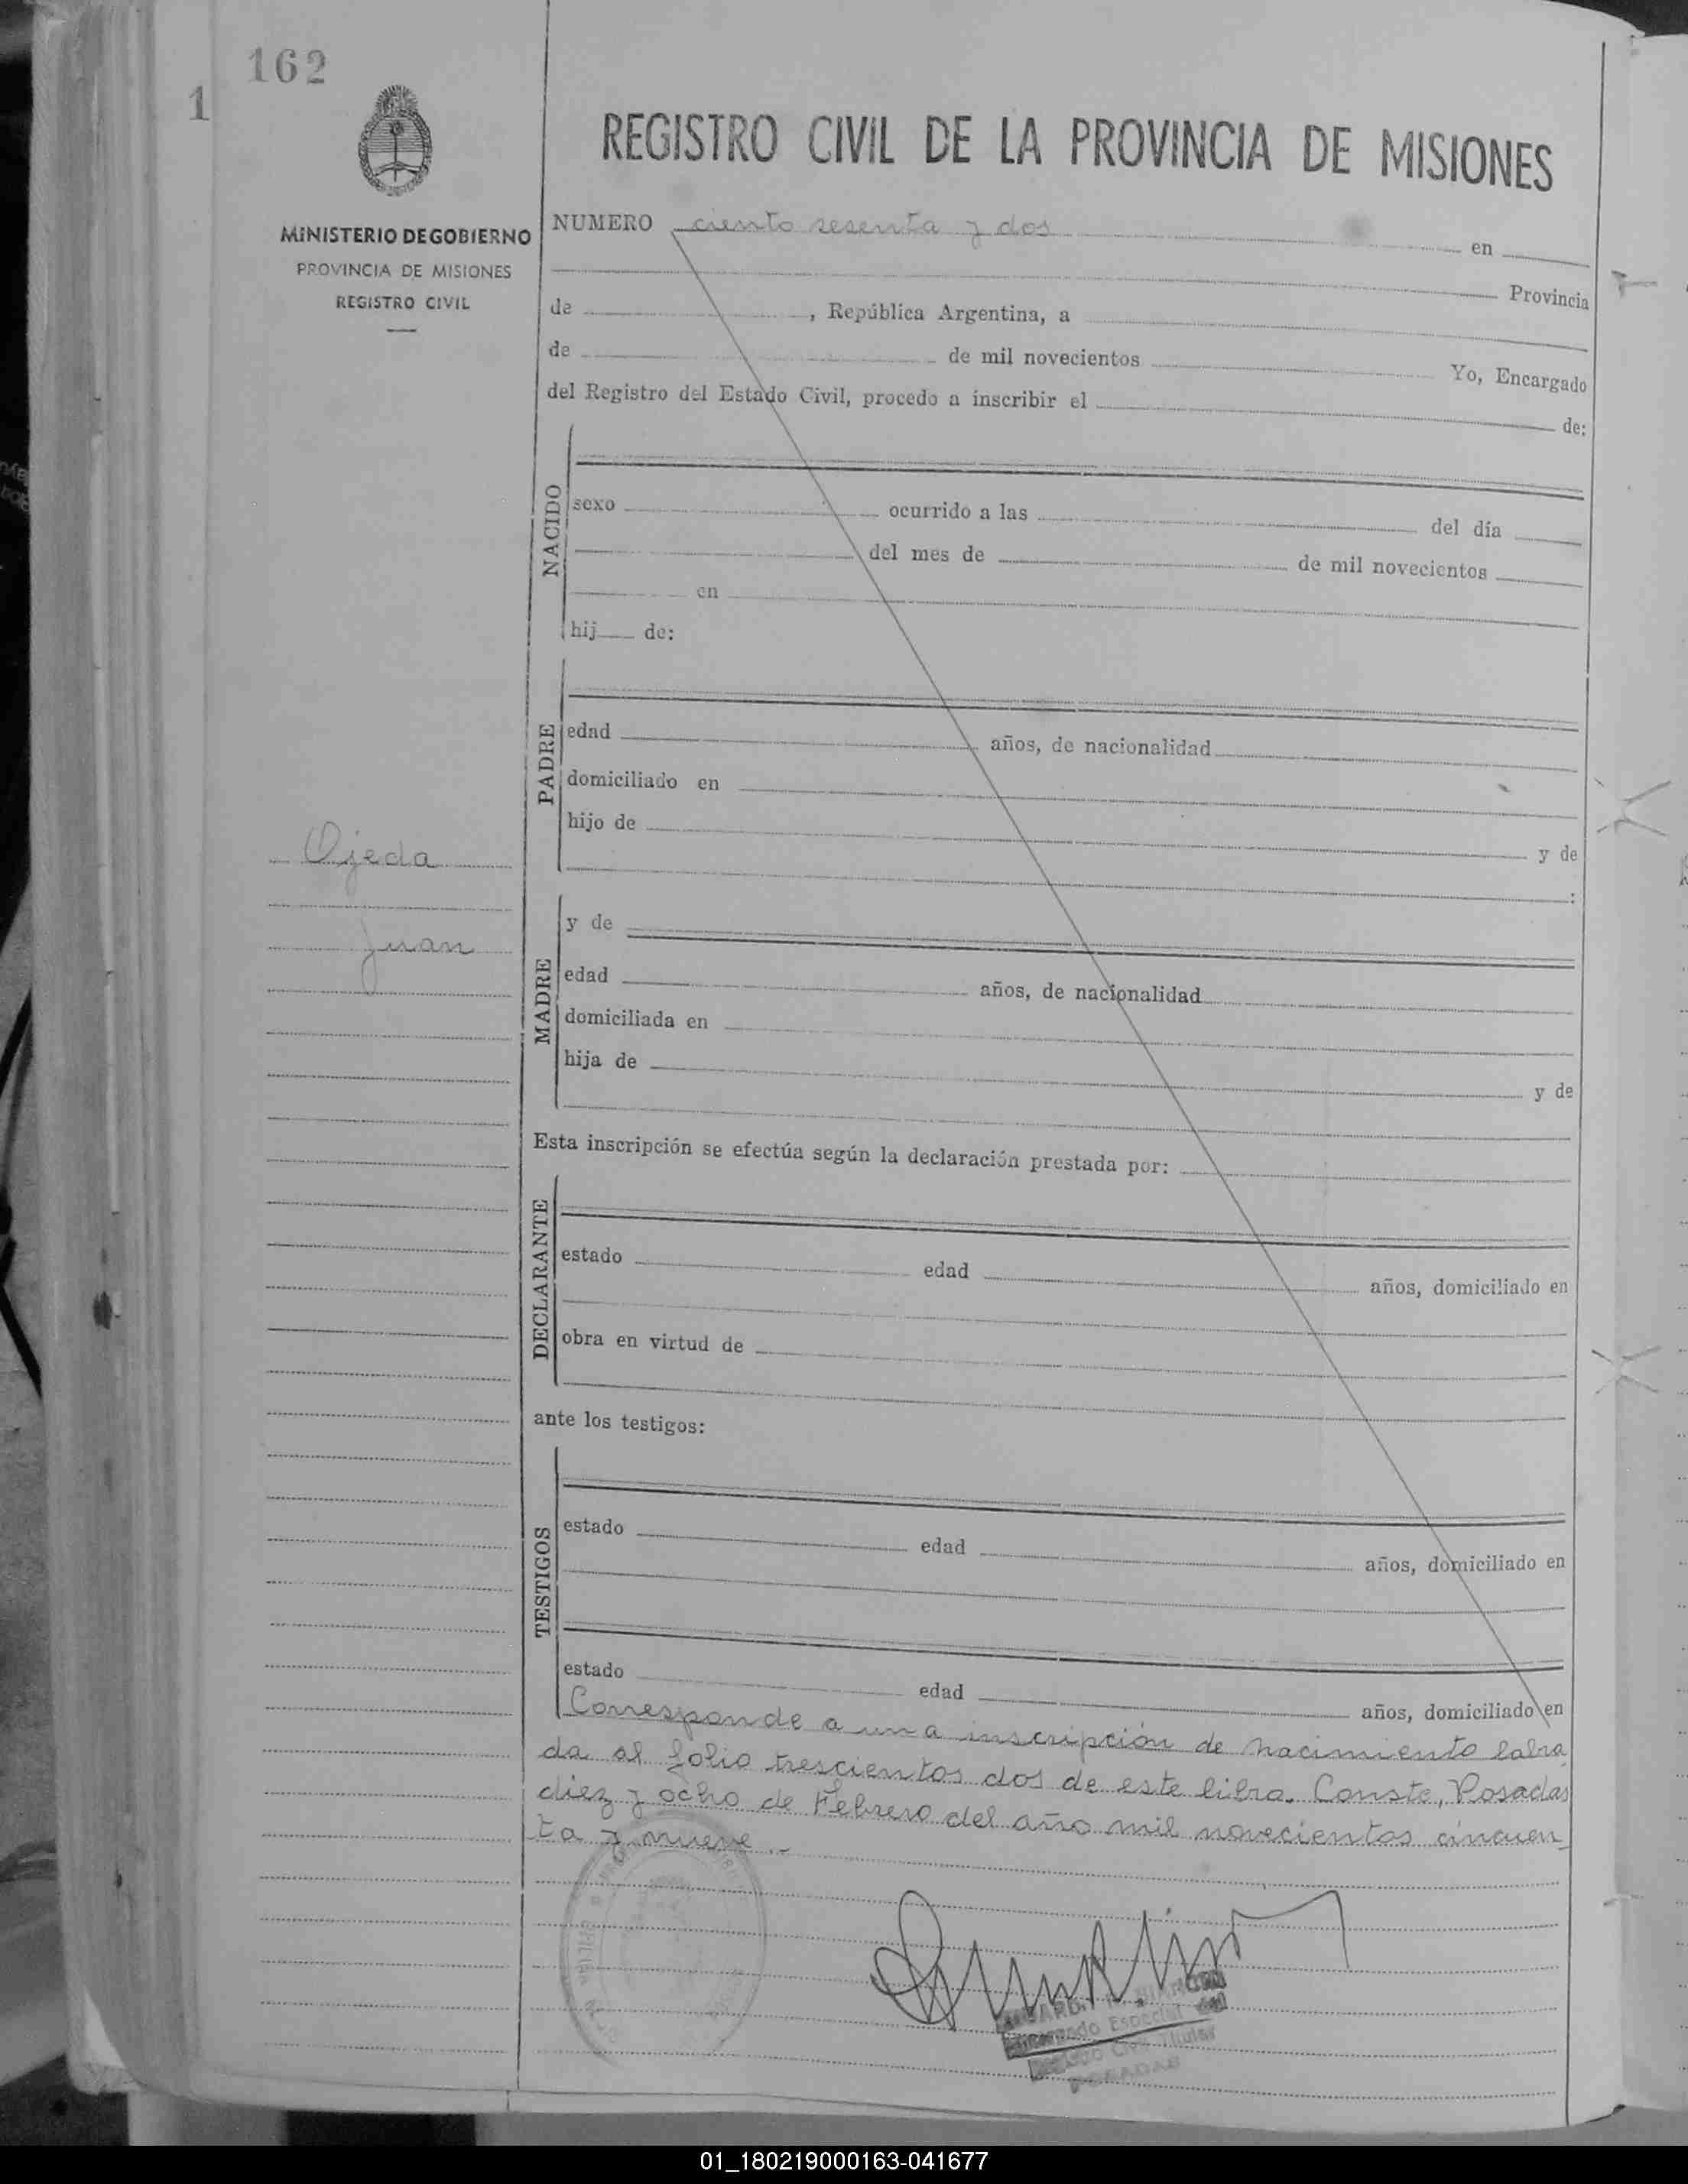 162
1
REGISTRO CIVIL DE LA PROVINCIA DE MISIONES
MINISTERIO DE GOBIERNO
PROVINCIA DE MISIONES
REGISTRO CIVIL
NUMERO ciento sesenta y dos en
Provincia
de , República Argentina, a
de de mil novecientos Yo, Encargado
del Registro del Estado Civil, procedo a inscribir el de:
NACIDO
sexo ocurrido a las del día
del mes de de mil novecientos
en
hij de:
PADRE
edad años, de nacionalidad
domiciliado en
hijo de y de
:
Ojeda
Juan
MADRE
y de
edad años, de nacionalidad
domiciliada en
hija de y de
Esta inscripción se efectúa según la declaración prestada por:
DECLARANTE
estado edad años, domiciliado en
obra en virtud de
ante los testigos:
TESTIGOS
estado edad años, domiciliado en
estado edad años, domiciliado en
Corresponde a una inscripción de nacimiento labra
da al folio trescientos dos de este libro. Conste, Posadas
diez y ocho de Febrero del año mil novecientos cincuen
ta y nueve.-
Encargado Especial del
Registro Civil Titular
POSADAS
01_180219000163-041677